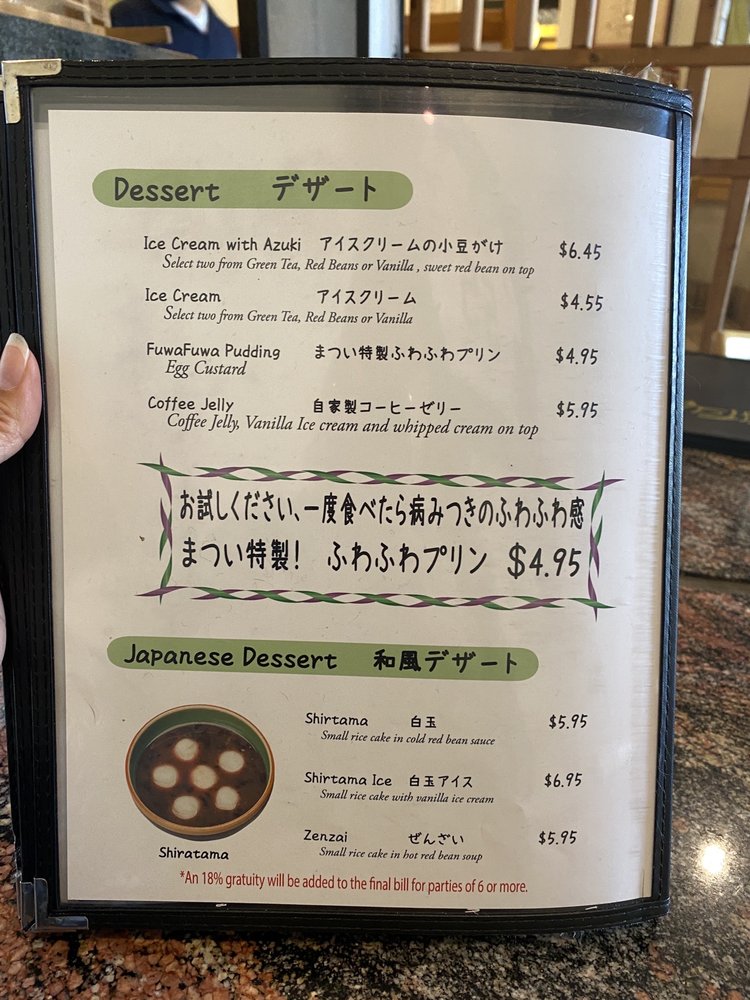 Dessert デザート
Ice Cream with Azuki アイスクリームの小豆がけ $6.45
Select two from Green Tea, Red Beans or Vanilla , sweet red bean on top
Ice Cream アイスクリーム $4.55
Select two from Green Tea, Red Beans or Vanilla
FuwaFuwa Pudding まつい特製ふわふわプリン $4.95
Egg Custard
Coffee Jelly 自家製コーヒーゼリー $5.95
Coffee Jelly, Vanilla Ice cream and whipped cream on top
お試しください、一度食べたら病みつきのふわふわ感
まつい特製! ふわふわプリン $4.95
Japanese Dessert 和風デザート
Shirtama 白玉 $5.95
Small rice cake in cold red bean sauce
Shirtama Ice 白玉アイス $6.95
Small rice cake with vanilla ice cream
Zenzai ぜんざい $5.95
Small rice cake in hot red bean soup
Shiratama
*An 18% gratuity will be added to the final bill for parties of 6 or more.